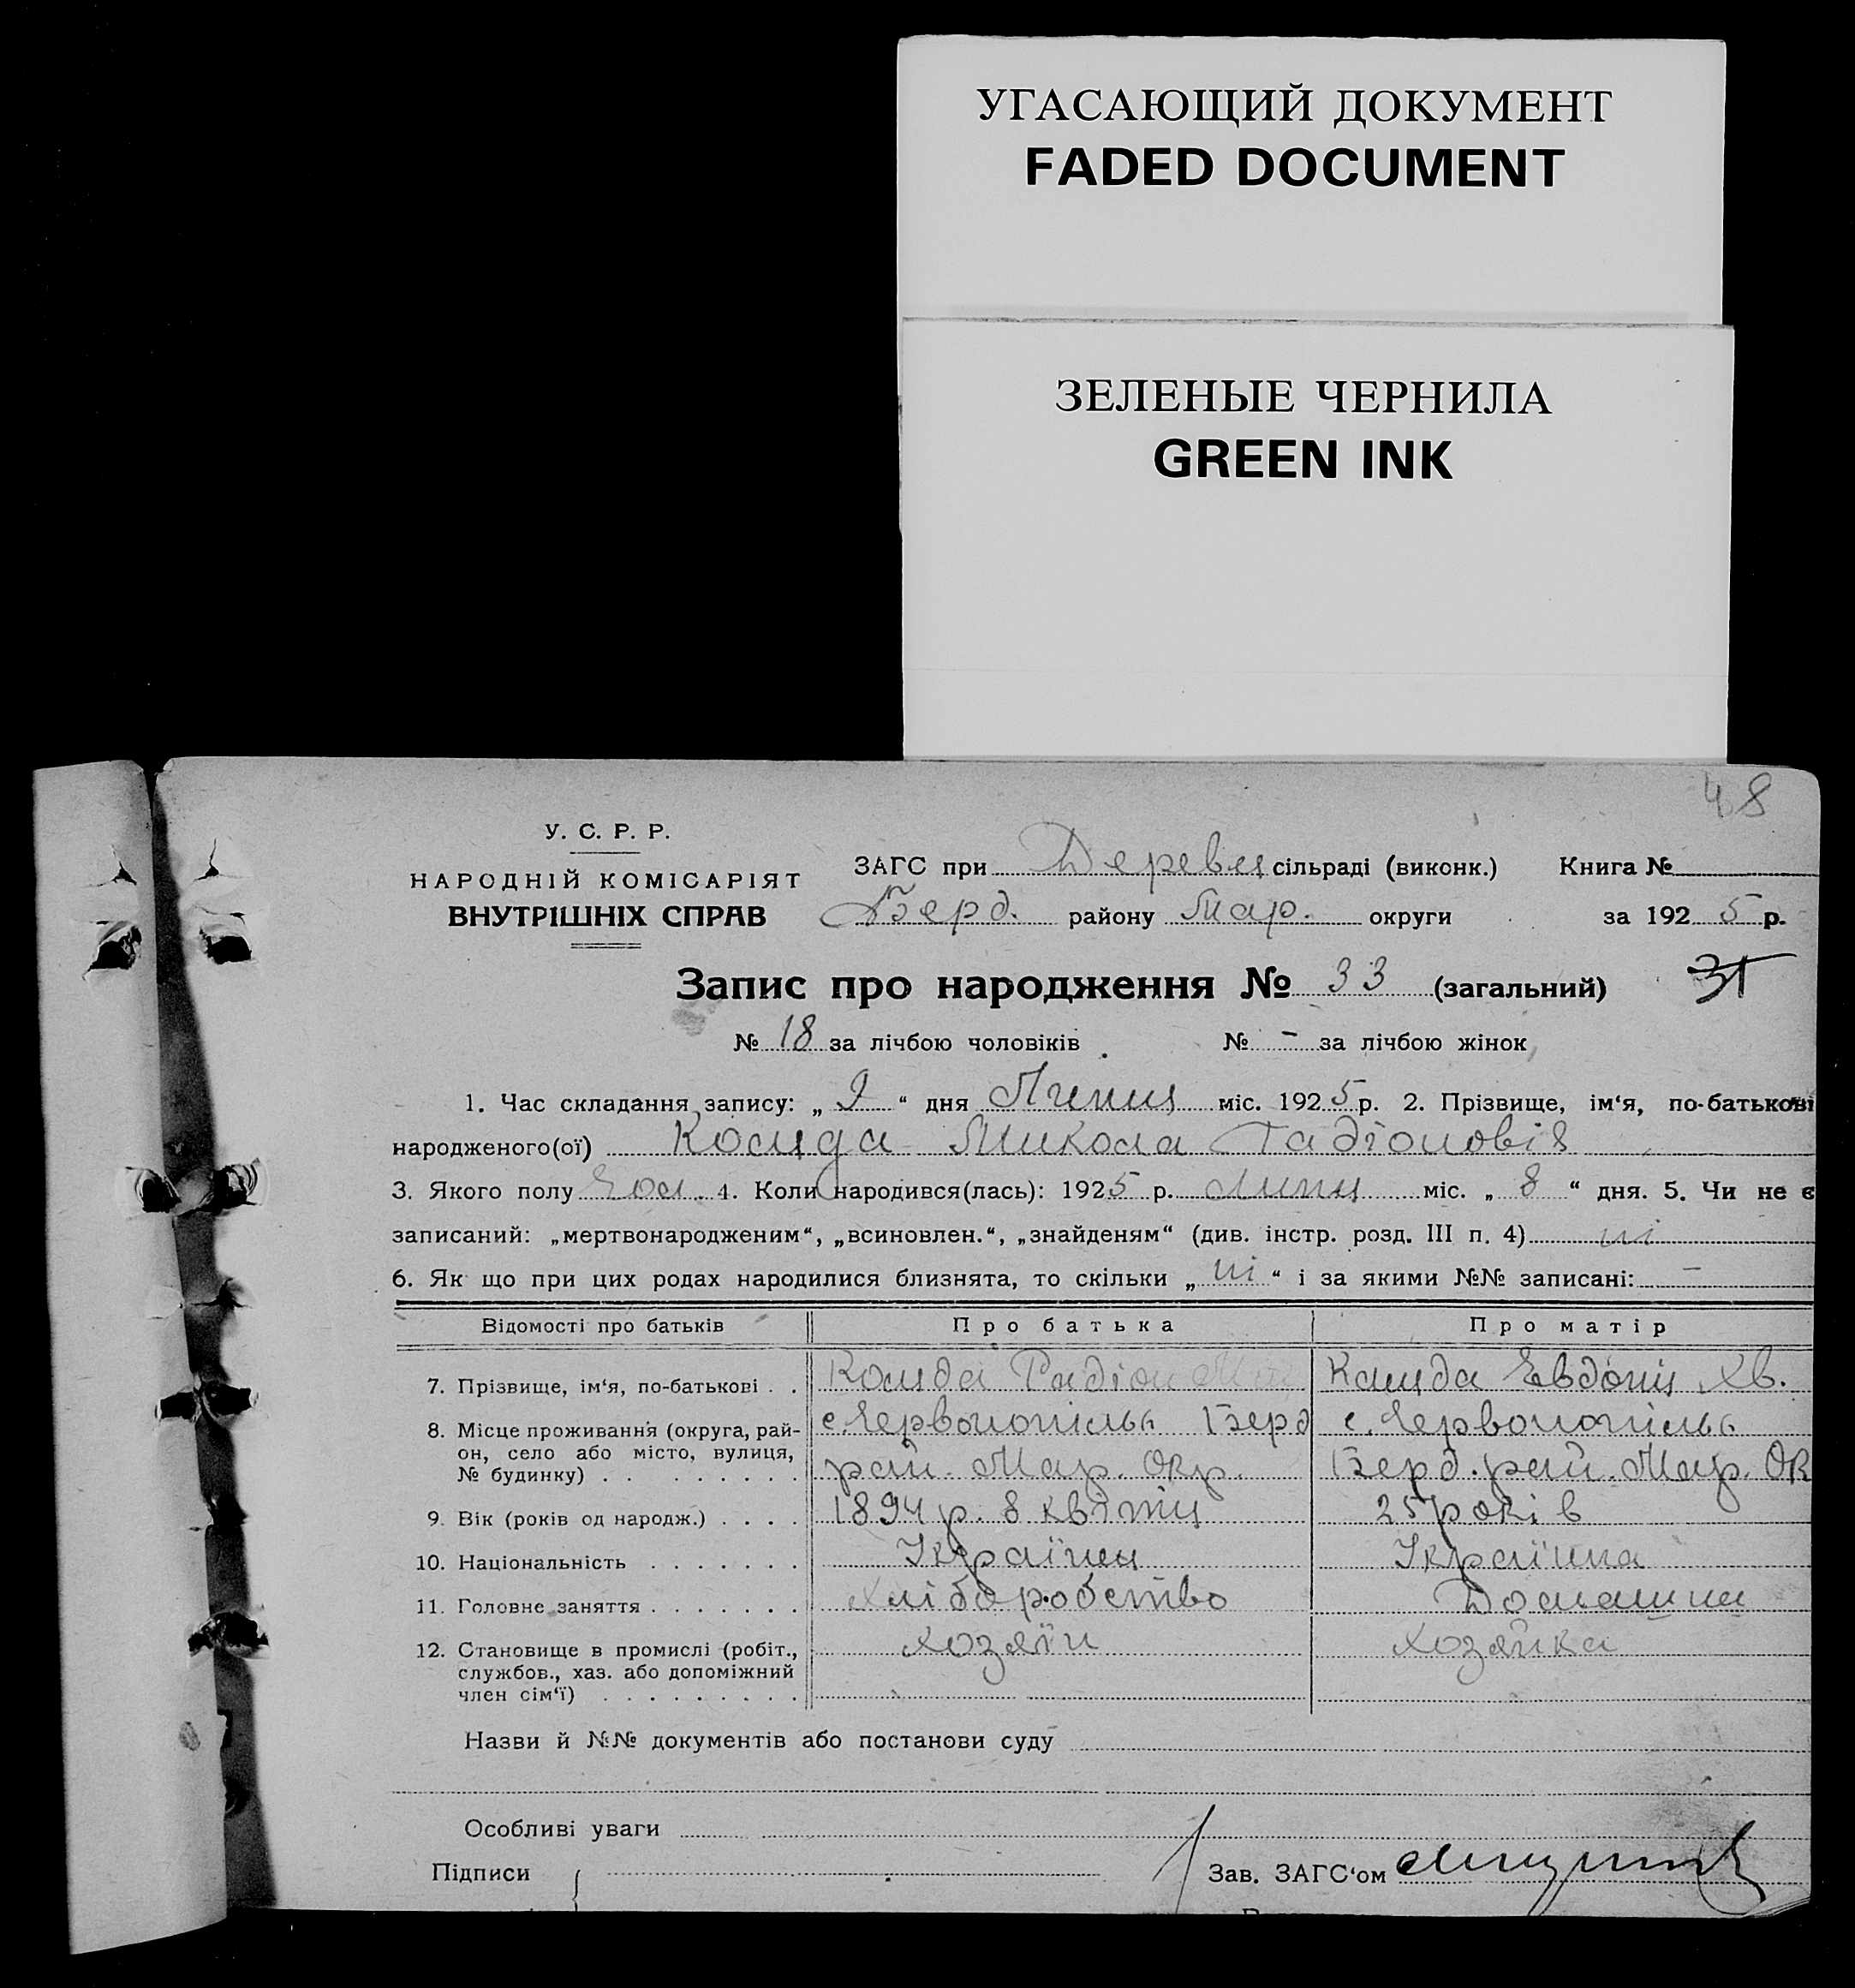 УГАСАЮЩИЙ ДОКУМЕНТ
FADED DOCUMENT
ЗЕЛЕНЫЕ ЧЕРНИЛА
GREEN INK
48
У. С. Р. Р.
НАРОДНІЙ КОМІСАРІЯТ
ВНУТРІШНІХ СПРАВ
ЗАГС при Деревец сільраді (виконк.) Книга №
Берд. району Мар. округи за 1925 р.
Запис про народження № 33 (загальний) 31
№ 18 за лічбою чоловіків № - за лічбою жінок
1. Час складання запису: „ 9 “ дня Липця міс. 1925 р. 2. Прізвище, ім‘я, по-батькові
народженого(ої) Микола
3. Якого полу Чол. 4. Коли народився(лась): 1925 р. Липц міс. „ 8 “ дня. 5. Чи не є
записаний: „мертвонародженим“, „всиновлен.“, „знайденям“ (див. інстр. розд. III п. 4) ні
6. Як що при цих родах народилися близнята, то скільки „ ні “ і за якими №№ записані: —
Відомості про батьків Про батька Про матір
7. Прізвище, ім‘я, по-батькові . . Радіон Хв.
8. Місце проживання (округа, рай-
он, село або місто, вулиця,
№ будинку) . . . . . . . .
с. Червонопілья Берд
рай. Мар. Окр.
с. Червонопілья
Берд. рай. Мар. Ок
9. Вік (років од народж.) . . . . 1894 р. 8 квітця 25 років
10. Національність . . . . . . . Українец Українка
11. Головне заняття . . . . . . . Хліборобство Домашня
12. Становище в промислі (робіт.,
службов., хаз. або допоміжний
член сім‘ї) . . . . . . . . .
хозяїн хозяйка
Назви й №№ документів або постанови суду
Особливі уваги
Підписи Зав. ЗАГС‘ом